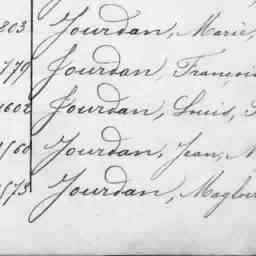 803 Jourdan, Marie,
779 Jourdan, François
1602 Jourdan, Louis,
1560 Jourdan, Jean, M
1573 Jourdan, Magloir